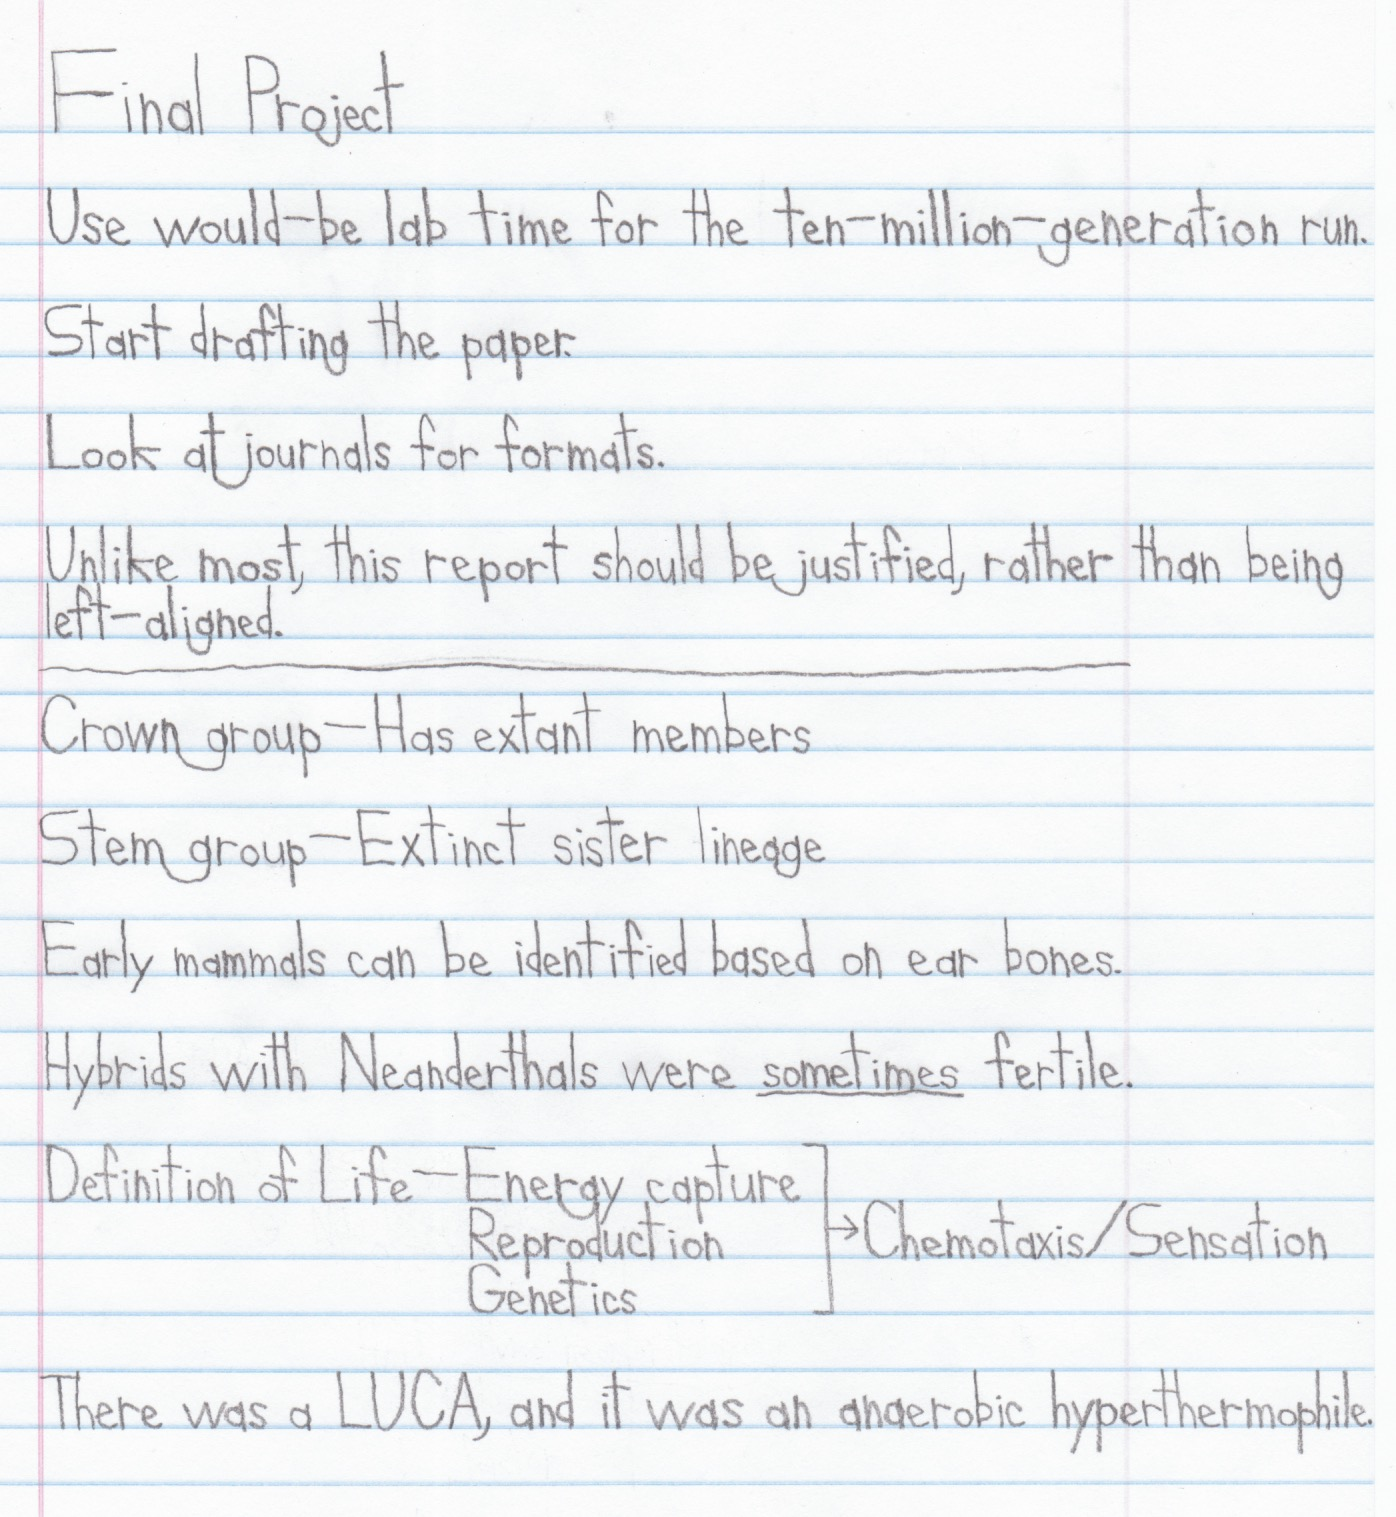 Final Project
Use would-be lab time for the ten-million-generation run.
Start drafting the paper.
Look at journals for formats.
Unlike most, this report should be justified, rather than being
left-aligned.
Crown group—Has extant members
Stem group—Extinct sister lineage
Early mammals can be identified based on ear bones.
Hybrids with Neanderthals were sometimes fertile.
Definition of Life—Energy capture
Reproduction
→Chemotaxis/Sensation
Genetics
There was a LUCA, and it was an anaerobic hyperthermophile.